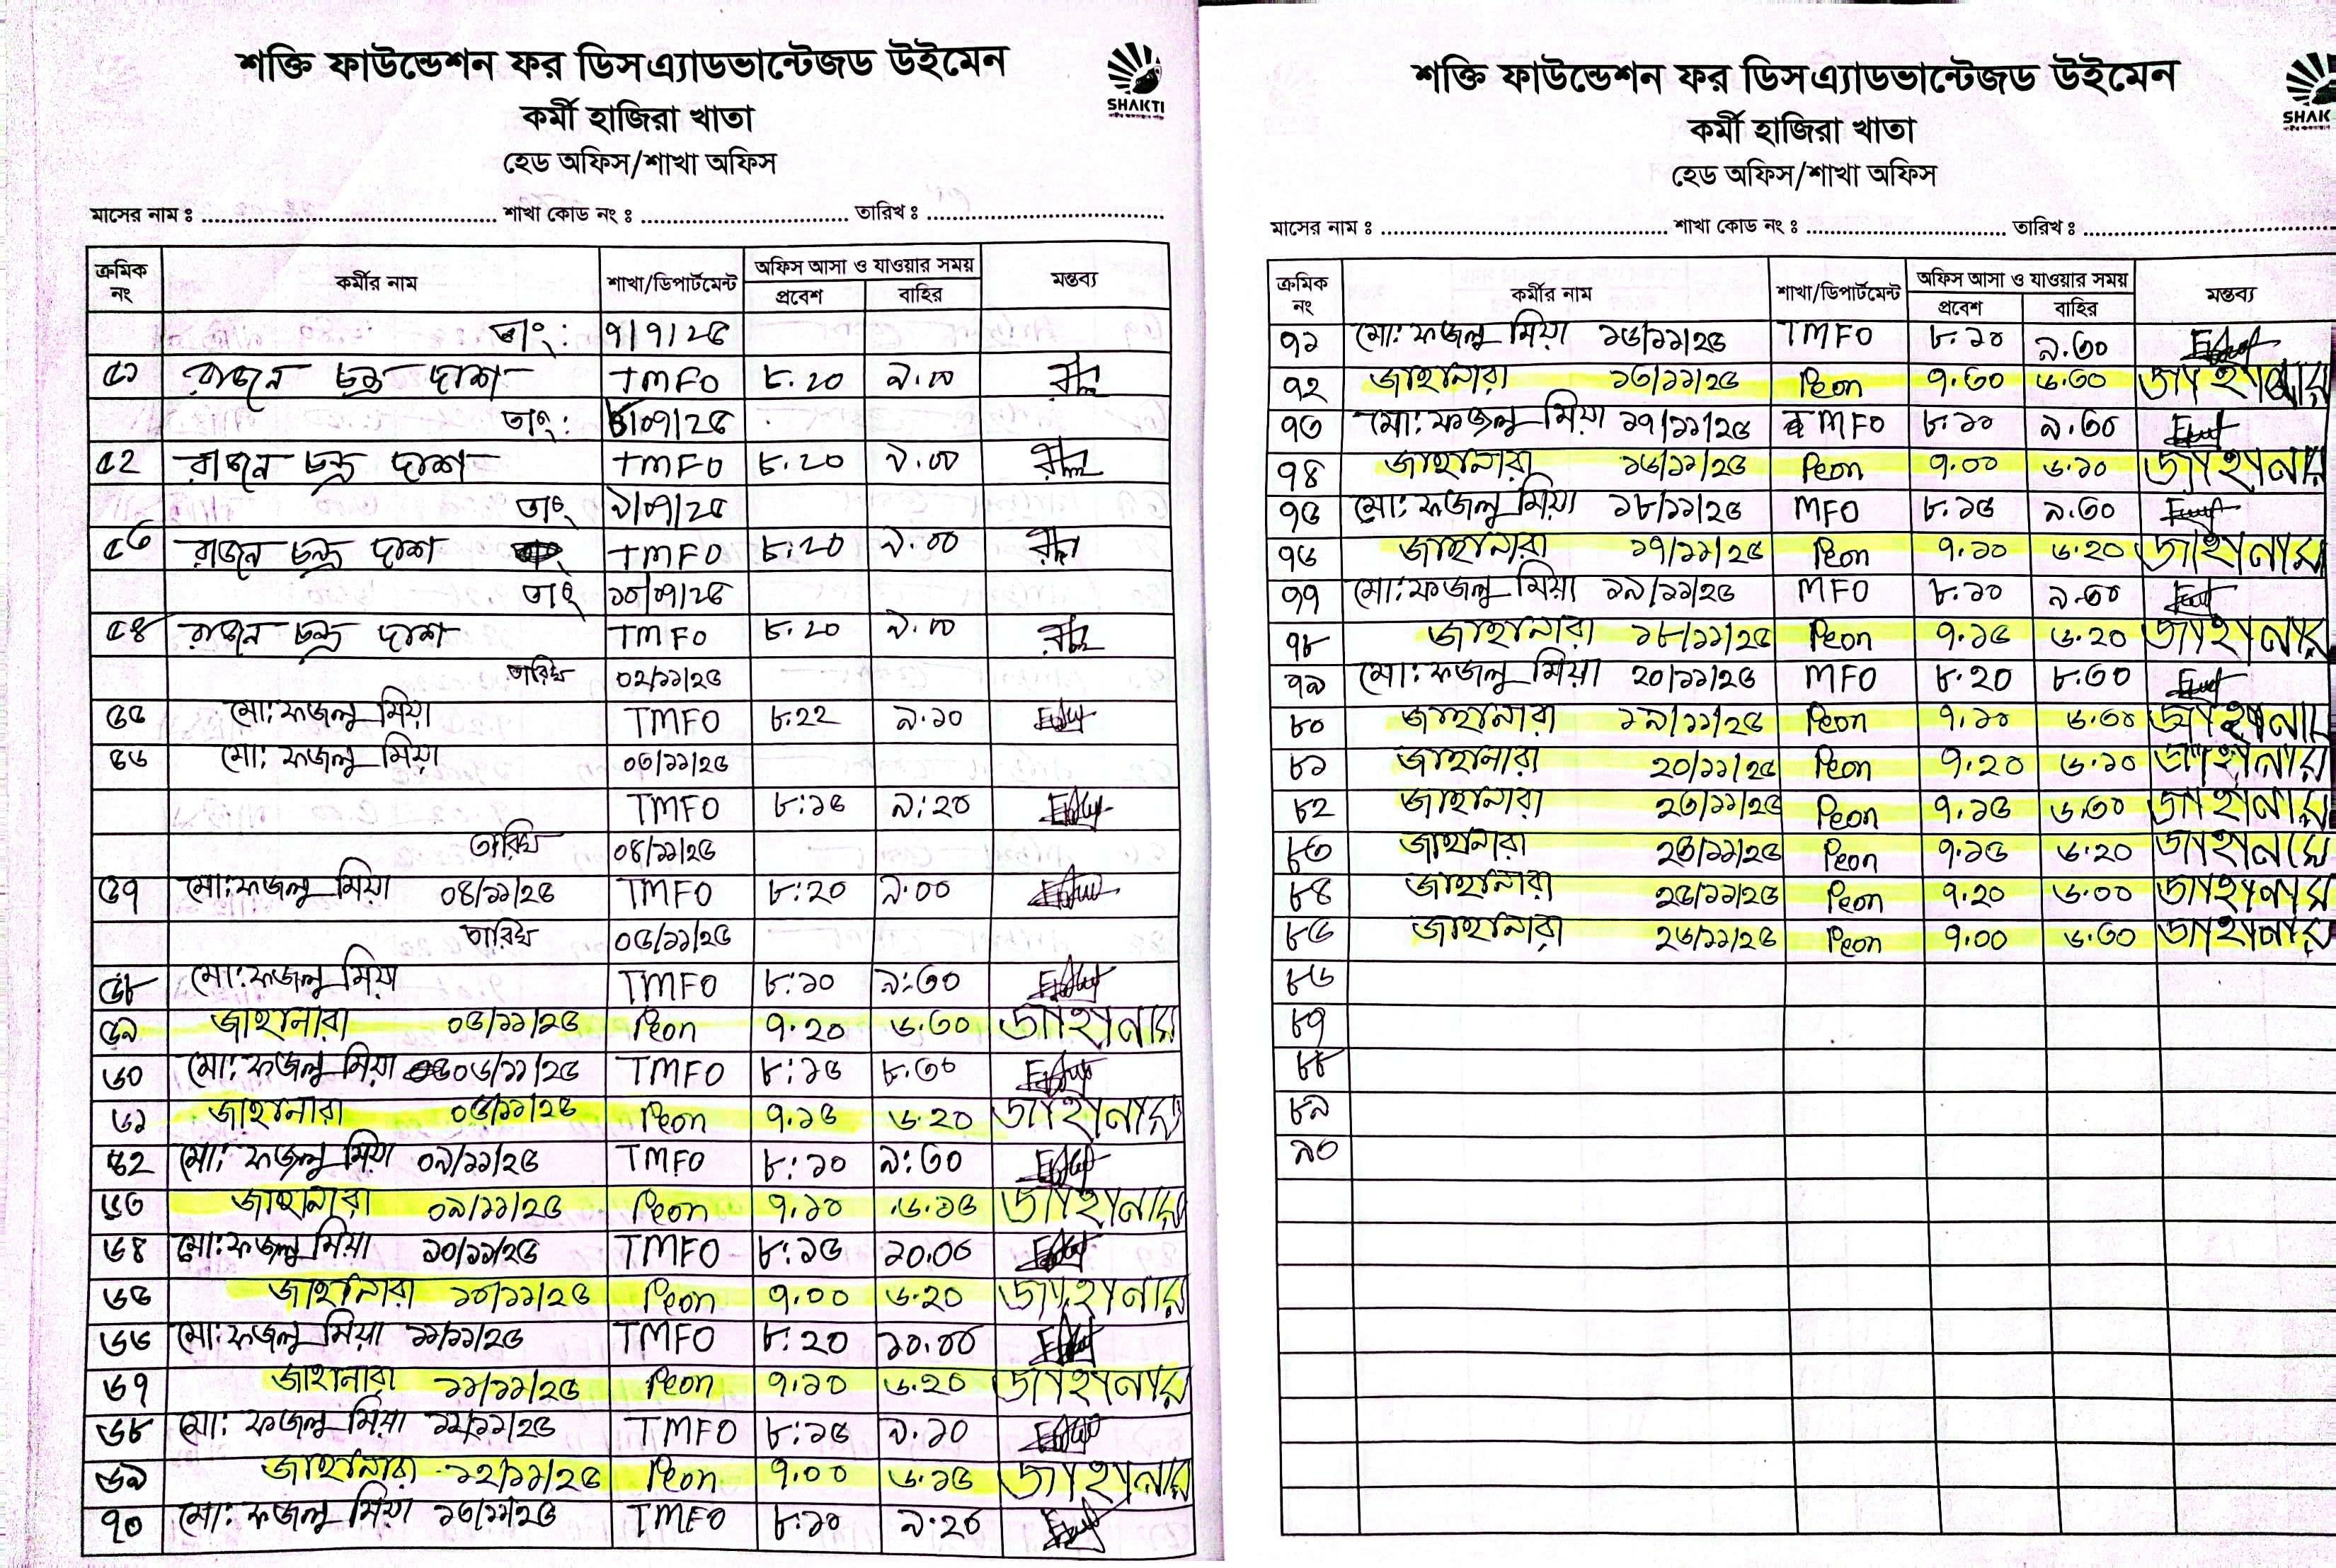 শক্তি ফাউন্ডেশন ফর ডিসএ্যাডভান্টেজড উইমেন
SHAKTI
কর্মী হাজিরা খাতা
হেড অফিস/শাখা অফিস
মাসের নাম ঃ শাখা কোড নং ঃ তারিখ ঃ
ক্রমিক নং কর্মীর নাম শাখা/ডিপার্টমেন্ট অফিস আসা ও যাওয়ার সময় মন্তব্য
প্রবেশ বাহির
তাং: ৭/৭/২৫
৫১ রাজন চন্দ্র দাশ TMFO ৮.২০ ৯.০০
তাং: ৮/০৭/২৫
৫২ রাজন চন্দ্র দাশ TMFO ৮.২০ ৯.০০
তাং ৯/০৭/২৫
৫৩ রাজন চন্দ্র দাশ TMFO ৮:২০ ৯.০০
তাং ১০/০৭/২৫
৫৪ রাজন চন্দ্র দাশ TMFO ৮.২০ ৯.০০
তারিখ ০২/১১/২৫
৫৫ মো: ফজলু মিয়া TMFO ৮:২২ ৯.১০
৫৬ মো: ফজলু মিয়া ০৩/১১/২৫
TMFO ৮:১৫ ৯:২০
তারিখ ০৪/১১/২৫
৫৭ মো: ফজলু মিয়া ০৪/১১/২৫ TMFO ৮:২০ ৯.০০
তারিখ ০৫/১১/২৫
৫৮ মো: ফজলু মিয়া TMFO ৮:১০ ৯:৩০
৫৯ জাহানারা ০৫/১১/২৫ Peon ৭.২০ ৬.৩০ জাহানারা
৬০ মো: ফজলু মিয়া ০৬/১১/২৫ TMFO ৮:১৫ ৮.৩০
৬১ জাহানারা ০৬/১১/২৫ Peon ৭.১৫ ৬.২০ জাহানারা
৬২ মো: ফজলু মিয়া ০৯/১১/২৫ TMFO ৮:১০ ৯:৩০
৬৩ জাহানারা ০৯/১১/২৫ Peon ৭.১০ ৬.১৫ জাহানারা
৬৪ মো: ফজলু মিয়া ১০/১১/২৫ TMFO ৮:১৫ ১০.০০
৬৫ জাহানারা ১০/১১/২৫ Peon ৭.০০ ৬.২০ জাহানারা
৬৬ মো: ফজলু মিয়া ১১/১১/২৫ TMFO ৮:২০ ১০.০০
৬৭ জাহানারা ১১/১১/২৫ Peon ৭.১০ ৬.২০ জাহানারা
৬৮ মো: ফজলু মিয়া ১২/১১/২৫ TMFO ৮:১৫ ৯.১০
৬৯ জাহানারা ১২/১১/২৫ Peon ৭.০০ ৬.১৫ জাহানারা
৭০ মো: ফজলু মিয়া ১৩/১১/২৫ TMFO ৮:১০ ৯.২০
শক্তি ফাউন্ডেশন ফর ডিসএ্যাডভান্টেজড উইমেন
SHAK
কর্মী হাজিরা খাতা
হেড অফিস/শাখা অফিস
মাসের নাম ঃ শাখা কোড নং ঃ তারিখ ঃ
ক্রমিক নং কর্মীর নাম শাখা/ডিপার্টমেন্ট অফিস আসা ও যাওয়ার সময় মন্তব্য
প্রবেশ বাহির
৭১ মো: ফজলু মিয়া ১৬/১১/২৫ TMFO ৮:১০ ৯.৩০
৭২ জাহানারা ১৩/১১/২৫ Peon ৭.৩০ ৬.৩০ জাহানারা
৭৩ মো: ফজলু মিয়া ১৭/১১/২৫ MFO ৮:১০ ৯.৩০
৭৪ জাহানারা ১৬/১১/২৫ Peon ৭.০০ ৬.১০ জাহানারা
৭৫ মো: ফজলু মিয়া ১৮/১১/২৫ MFO ৮:১৫ ৯.৩০
৭৬ জাহানারা ১৭/১১/২৫ Peon ৭.১০ ৬.২০ জাহানারা
৭৭ মো: ফজলু মিয়া ১৯/১১/২৫ MFO ৮:১০ ৯.৩০
৭৮ জাহানারা ১৮/১১/২৫ Peon ৭.১৫ ৬.২০ জাহানারা
৭৯ মো: ফজলু মিয়া ২০/১১/২৫ MFO ৮:২০ ৮.৩০
৮০ জাহানারা ১৯/১১/২৫ Peon ৭.১০ ৬.৩০ জাহানারা
৮১ জাহানারা ২০/১১/২৫ Peon ৭.২০ ৬.১০ জাহানারা
৮২ জাহানারা ২৩/১১/২৫ Peon ৭.১৫ ৬.৩০ জাহানারা
৮৩ জাহানারা Peon ৭.১৫ ৬.২০ জাহানারা
৮৪ জাহানারা ২৫/১১/২৫ Peon ৭.২০ ৬.০০ জাহানারা
৮৫ জাহানারা ২৬/১১/২৫ Peon ৭.০০ ৬.৩০ জাহানারা
৮৬
৮৭
৮৮
৮৯
৯০